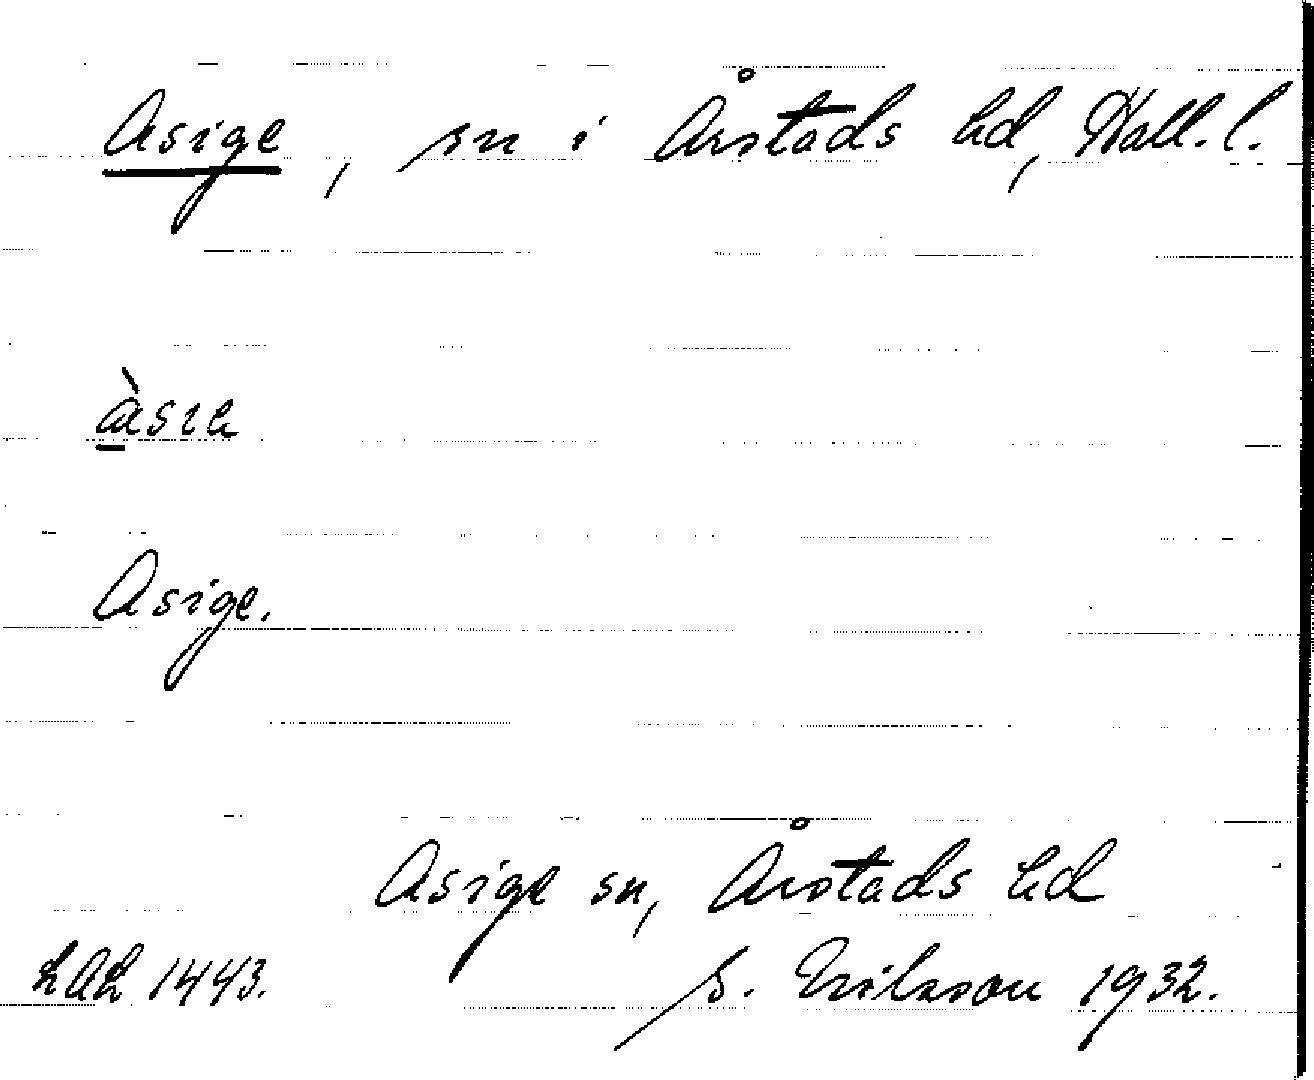 Asige, sn i Årstads hd, Hall. l.
àsıa
Asige.
Asige sn, Årstads hd
LAL 1443. S. Nilsson 1932.